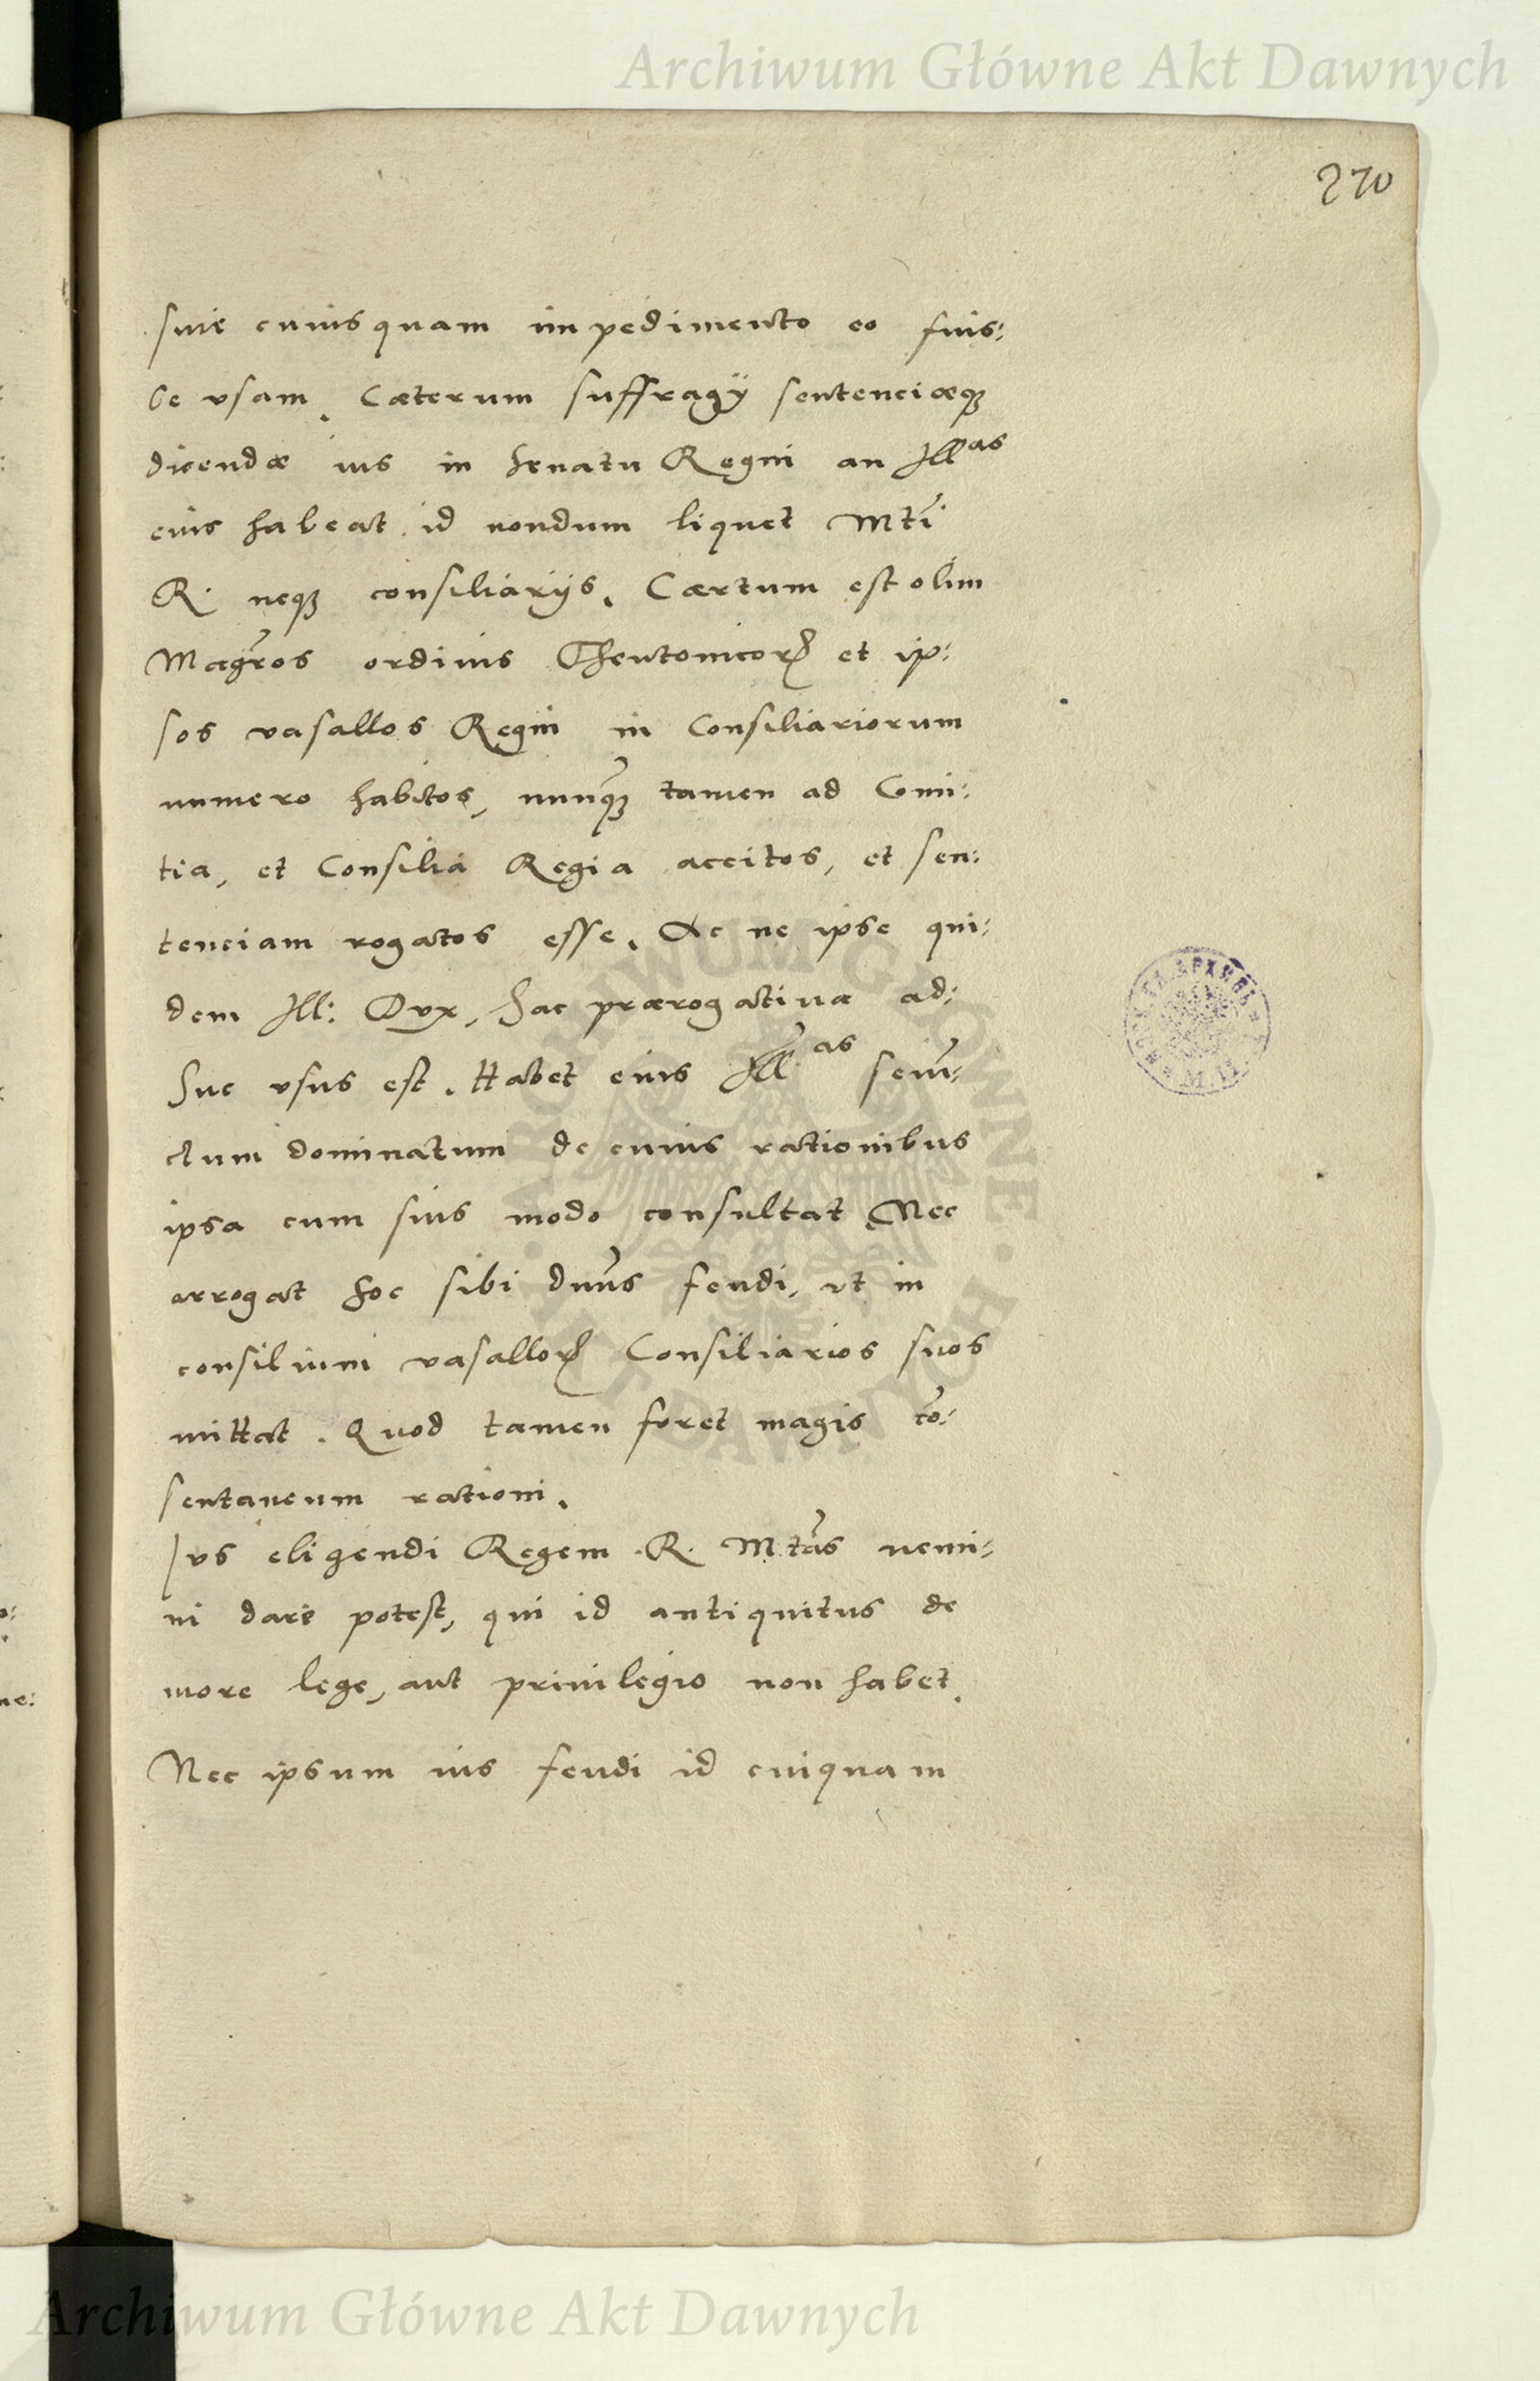 Archiwum Główne Akt Dawnych
270
sine cuiusquam impedimento eo fuis:
se vsam. Cæterum suffragÿ sentenciæq3
dicendæ ius in senatu Regni an Illas
eius habeat id nondum liquet Mti
R. neq3 consiliarijs. Cærtum est olim
Magros ordinis Theutonicor et ip:
sos vasallos Regni in Consiliariorum
numero habitos, nunq3 tamen ad Comi:
tia, et Consilia Regia accitos, et sen:
tenciam rogatos esse. Ac ne ipse qui:
dem Ill: Dvx, hac prærogatiua ad:
huc vsus est. Habet eius Illas seiu:
ctum dominatum de cuius rationibus
ipsa cum suis modo consultat. Nec
arrogat hoc sibi dnus feudi, vt in
consilium vasallor Consiliarios suos
mittat. Quod tamen foret magis co:
sentaneum rationi.
Jvs eligendi Regem .R. Mtas nemi:
ni dare potest, qui id antiquitus de
more lege, aut priuilegio non habet.
Nec ipsum ius feudi id cuiquam
ARCHIWUM GŁÓWNE · AKT DAWNYCH ·
Archiwum Główne Akt Dawnych